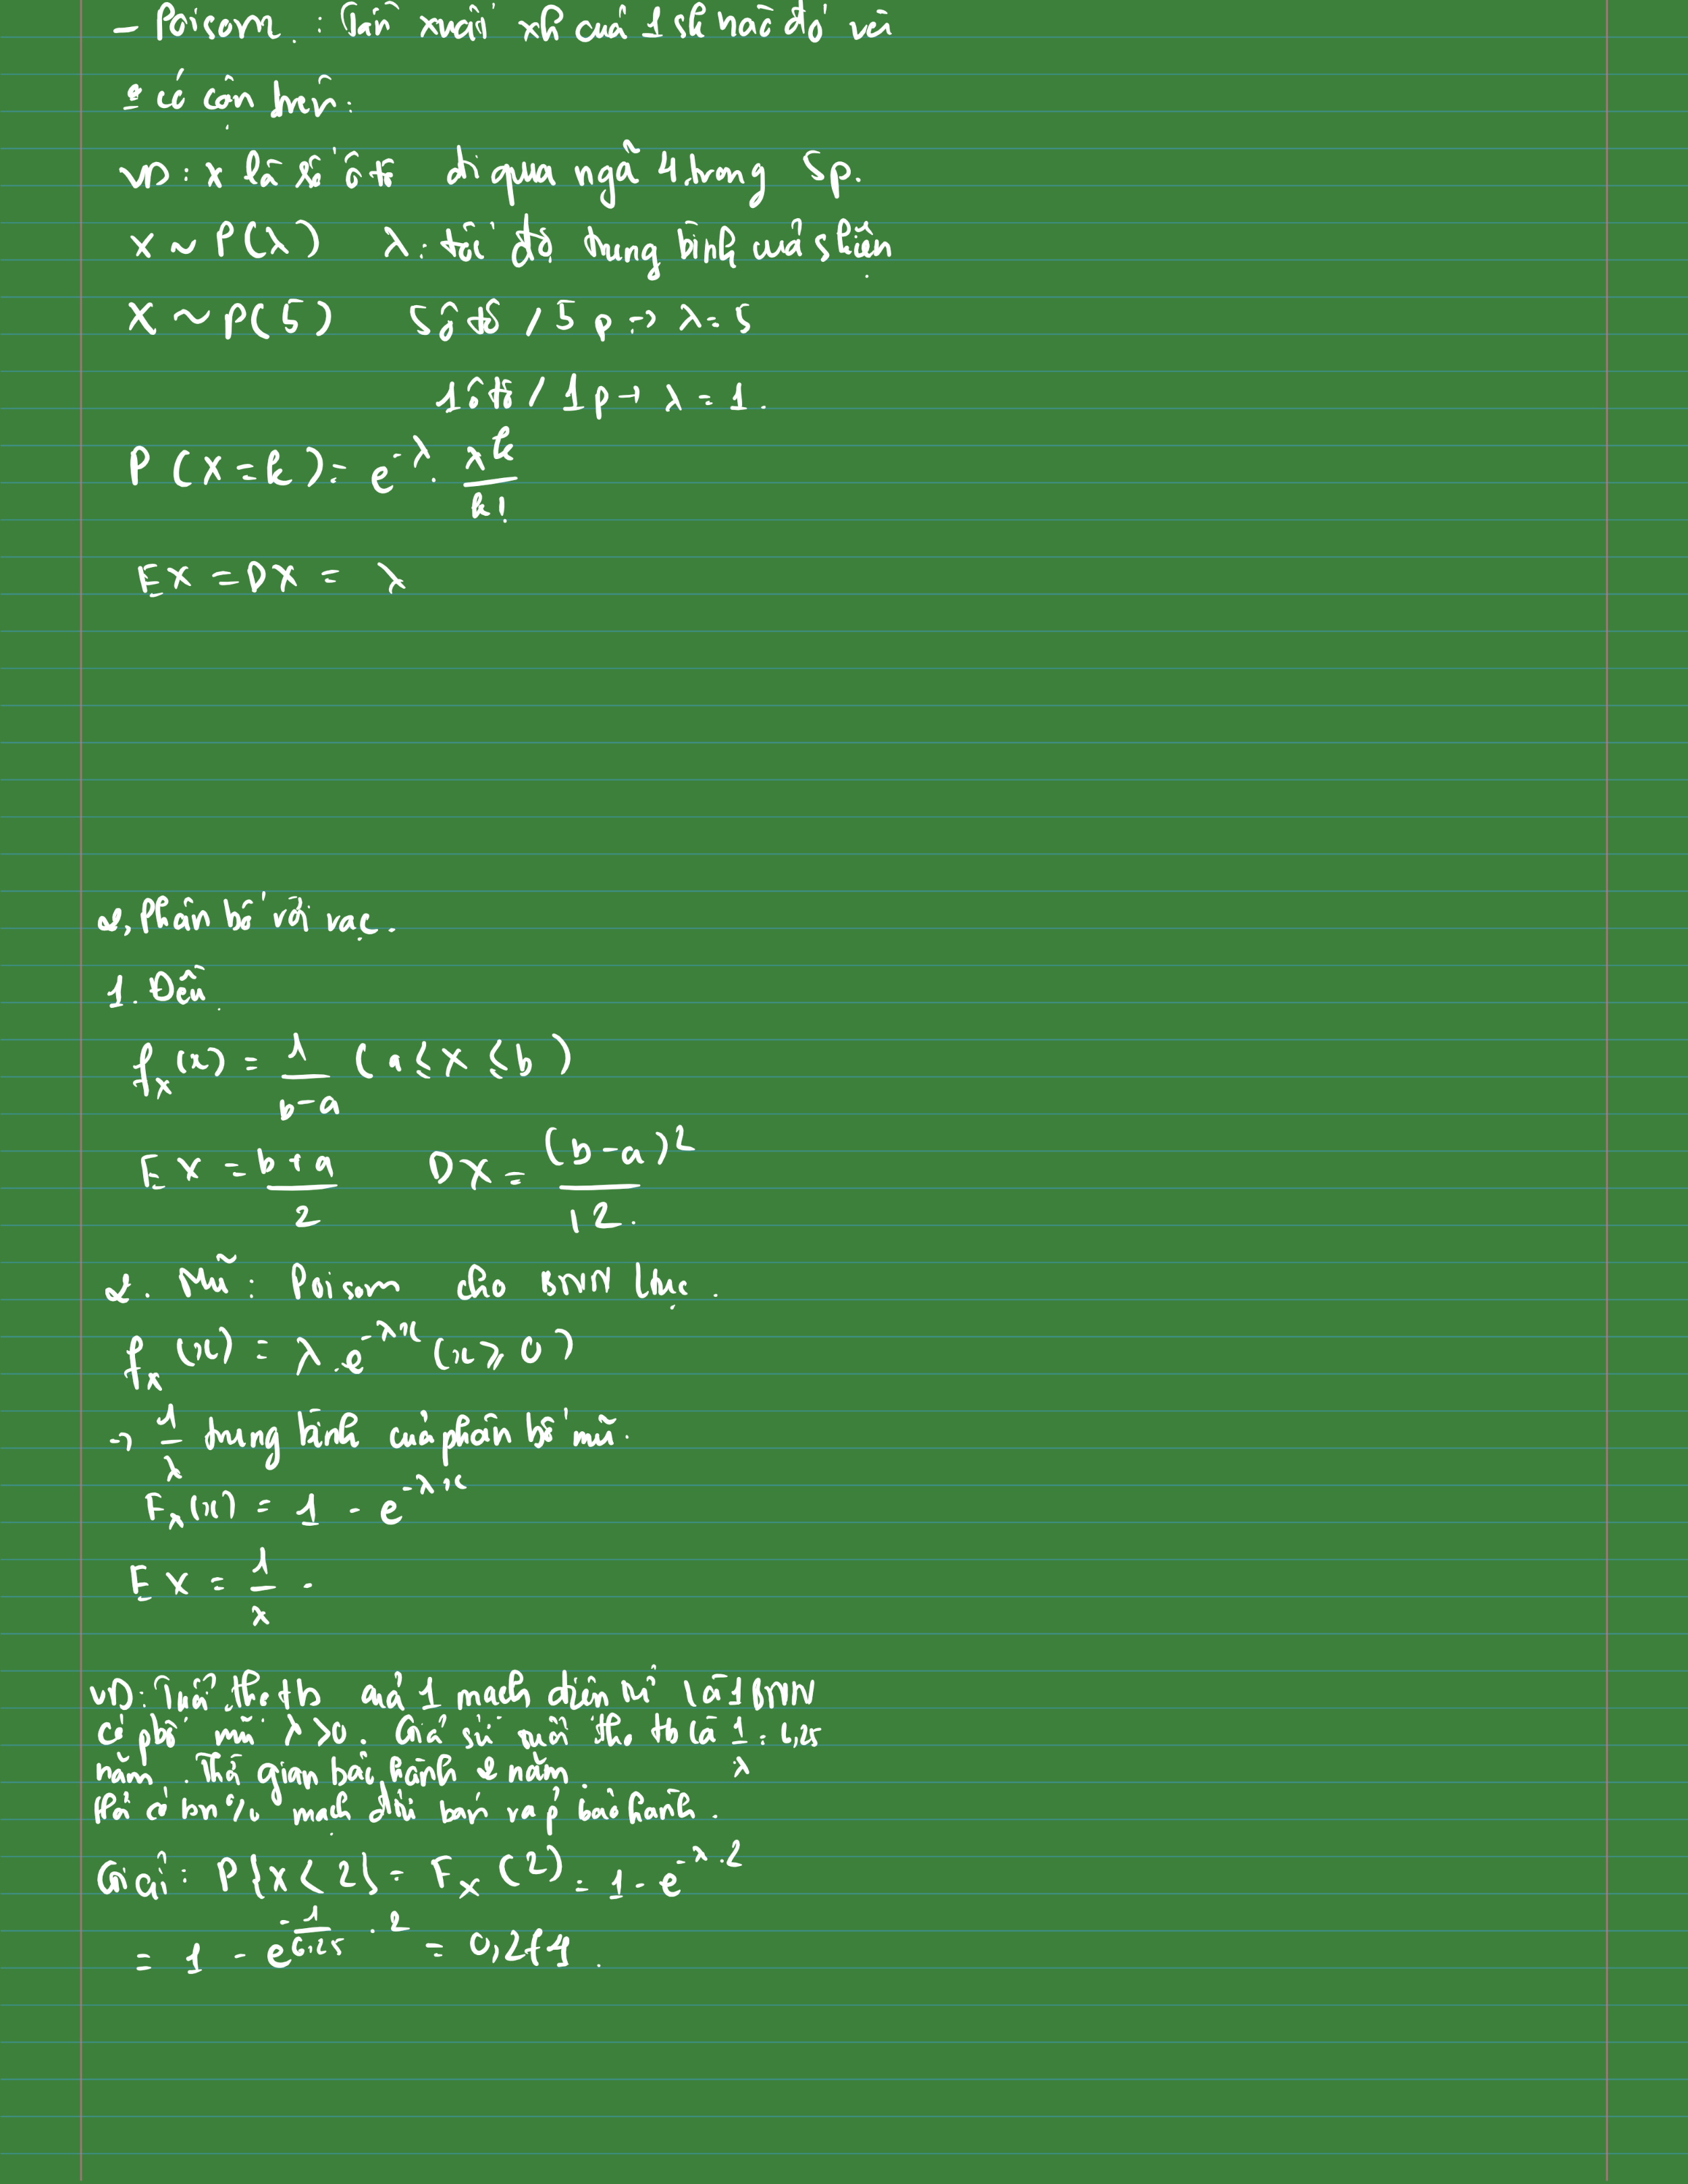 - Poisom : Tần xuất xh của 1 sk nào đó và
có cận trên.
VD : X là số ô tô đi qua ngã 4 trong 5p.
X ~ P(λ) λ : tốc độ trung bình của skiện
X ~ P(5) 5 ô tô / 5p → λ = 5
1 ô tô / 1p → λ = 1.
P(X = k) = e^{-λ} . λ^k / k!
EX = DX = λ
2, Phân bố rời rạc.
1. Đều.
f_X(x) = 1/(b-a) (a ≤ X ≤ b)
EX = (b+a)/2 DX = (b-a)²/12.
2. Mũ : Poisom cho BNN ltục.
f_X(x) = λ.e^{-λx} (x ≥ 0)
→ 1/λ trung bình của phân bố mũ.
F_X(x) = 1 - e^{-λx}
EX = 1/λ .
VD: Tuổi thọ tb của 1 mạch điện tử là 1 BNN
có pbố mũ λ > 0. Giả sử tuổi thọ tb là 1/λ = 6,25
năm. Thời gian bảo hành 2 năm.
Hỏi có bn % mạch đtử bán ra p bảo hành.
Giải : P{X < 2} = F_X(2) = 1 - e^{-λ.2}
= 1 - e^{-1/6,25 . 2} = 0,274 .